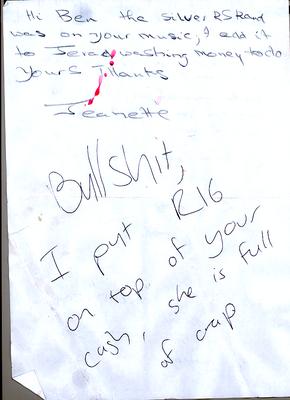 Hi Ben the silver R5 Rand
was on your music, I add it
to Jerad washing money to do
yours Thanks
Jeanette
Bullshit,
I put R16
on top of your
cash, she is full
of crap